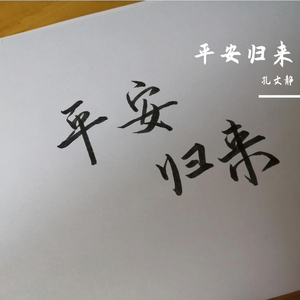 平安归来
孔文静
平安
归来